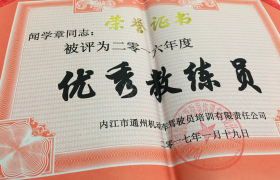 荣誉证书
闻学章同志：
被评为二零一六年度
优秀教练员
内江市通州机动车驾驶员培训有限责任公司
二零一七年一月十九日